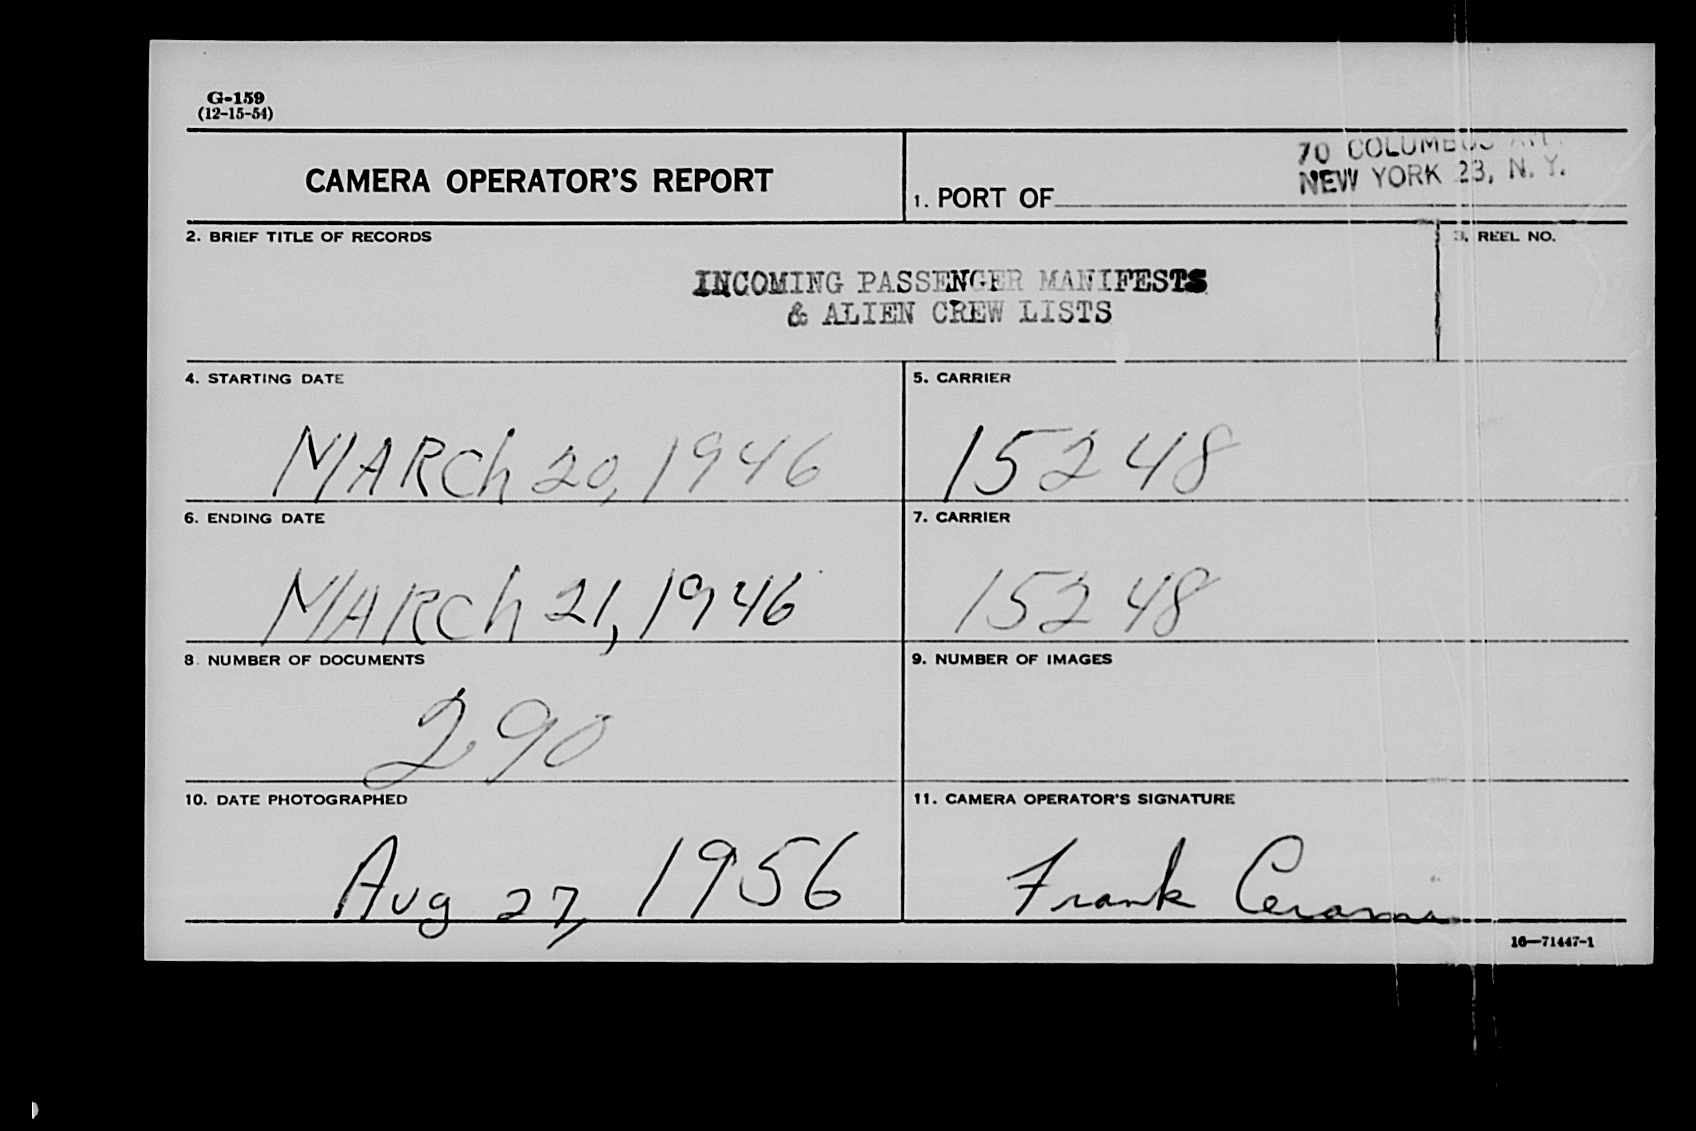 G-159
(12-15-54)
CAMERA OPERATOR'S REPORT
70 COLUMBUS AVE.
NEW YORK 23, N. Y.
1. PORT OF
2. BRIEF TITLE OF RECORDS
3. REEL NO.
INCOMING PASSENGER MANIFESTS
& ALIEN CREW LISTS
4. STARTING DATE
5. CARRIER
MARCh 20, 1946
15248
6. ENDING DATE
7. CARRIER
MARCh 21, 1946
15248
8. NUMBER OF DOCUMENTS
9. NUMBER OF IMAGES
290
10. DATE PHOTOGRAPHED
11. CAMERA OPERATOR'S SIGNATURE
Aug 27, 1956
Frank Cerami
16—71447-1